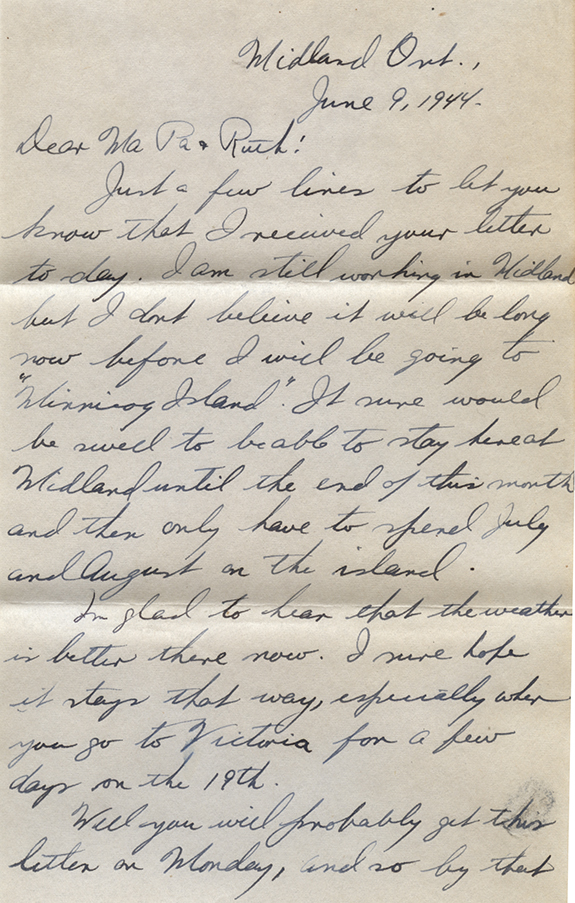 Midland Ont.,
June 9, 1944.
Dear Ma Pa & Ruth!
Just a few lines to let you
know that I received your letter
to day. I am still working in Midland
but I dont believe it will be long
now before I will be going to
"Minnicog Island". It sure would
be swell to be able to stay here at
Midland until the end of this month
and then only have to spend July
and August on the island.
Im glad to hear that the weather
is better there now. I sure hope
it stays that way, especially when
you go to Victoria for a few
days on the 19th.
Well you will probably get this
letter on Monday, and so by that